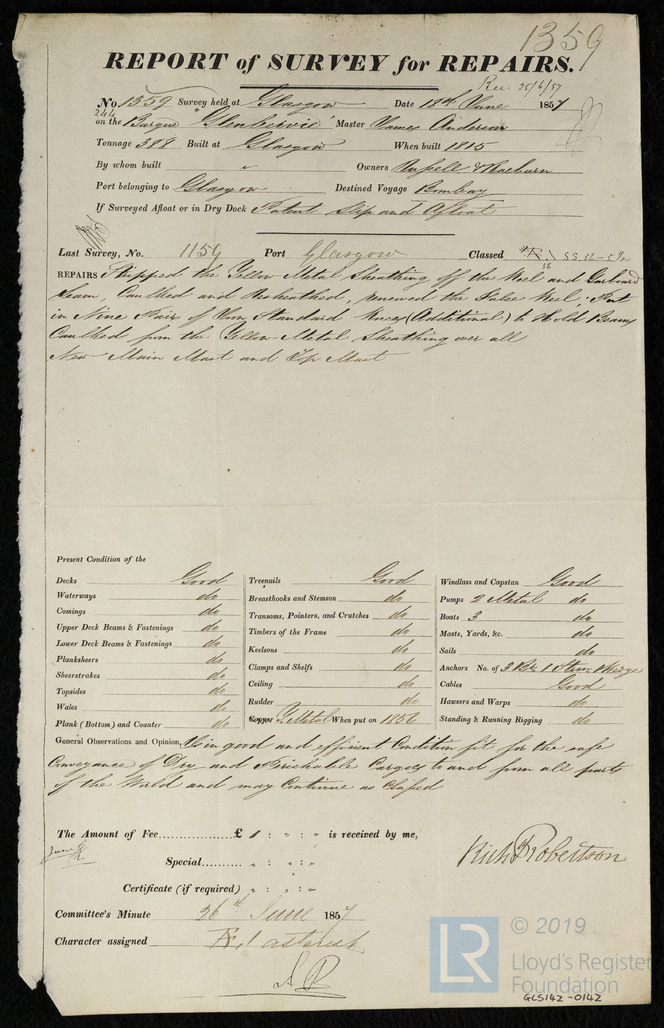 1359
REPORT of SURVEY for REPAIRS.
Rec 25/6/57
No 1359 Survey held at Glasgow Date 18th June 1857
244
on the Barque "Glenbervie" Master James Anderson
Tonnage 388 Built at Glasgow When built 1815
By whom built " Owners Russell & Raeburn
Port belonging to Glasgow Destined Voyage Bombay
If Surveyed Afloat or in Dry Dock Patent Slip and Afloat
Last Survey, No. 1159 Port Glasgow Classed
REPAIRS Stripped the Yellow Metal Sheathing off the Keel and Garboard
Seam, Caulked and Resheathed, renewed the False Keel; Put
in Nine Pair of Iron Standard Knees (Additional) to Hold Beams
Caulked from the Yellow Metal Sheathing over all
New Main Mast and Top Mast
Present Condition of the
Decks Good Treenails Good Windlass and Capstan Good
Waterways do Breasthooks and Stemson do Pumps 2 Metal do
Comings do Transoms, Pointers, and Crutches do Boats 3 do
Upper Deck Beams & Fastenings do Timbers of the Frame do Masts, Yards, &c. do
Lower Deck Beams & Fastenings do Keelsons do Sails do
Planksheers do Clamps and Shelfs do Anchors No. of 3 1
Sheerstrakes do Ceiling do Cables Good
Topsides do Rudder do Hawsers and Warps do
Wales do Copper Y. Metal When put on 1856 Standing & Running Rigging do
Plank (Bottom) and Counter do
General Observations and Opinion, Is in good and efficient Condition fit for the safe
Conveyance of Dry and Perishable Cargoes to and from all parts
of the World and may Continue as Classed
The Amount of Fee £ 1 : " : " is received by me,
Special " : " : "
Richd Robertson
Certificate (if required) " : " : "
Committee's Minute 26th June 1857
Character assigned
© 2019
LR
Lloyd's Register
Foundation
GLS142-0142